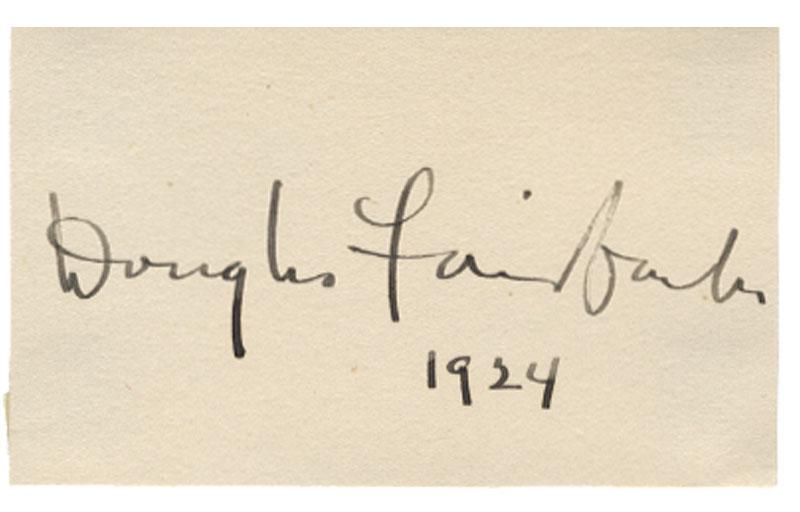 Douglas Fairbanks
1924